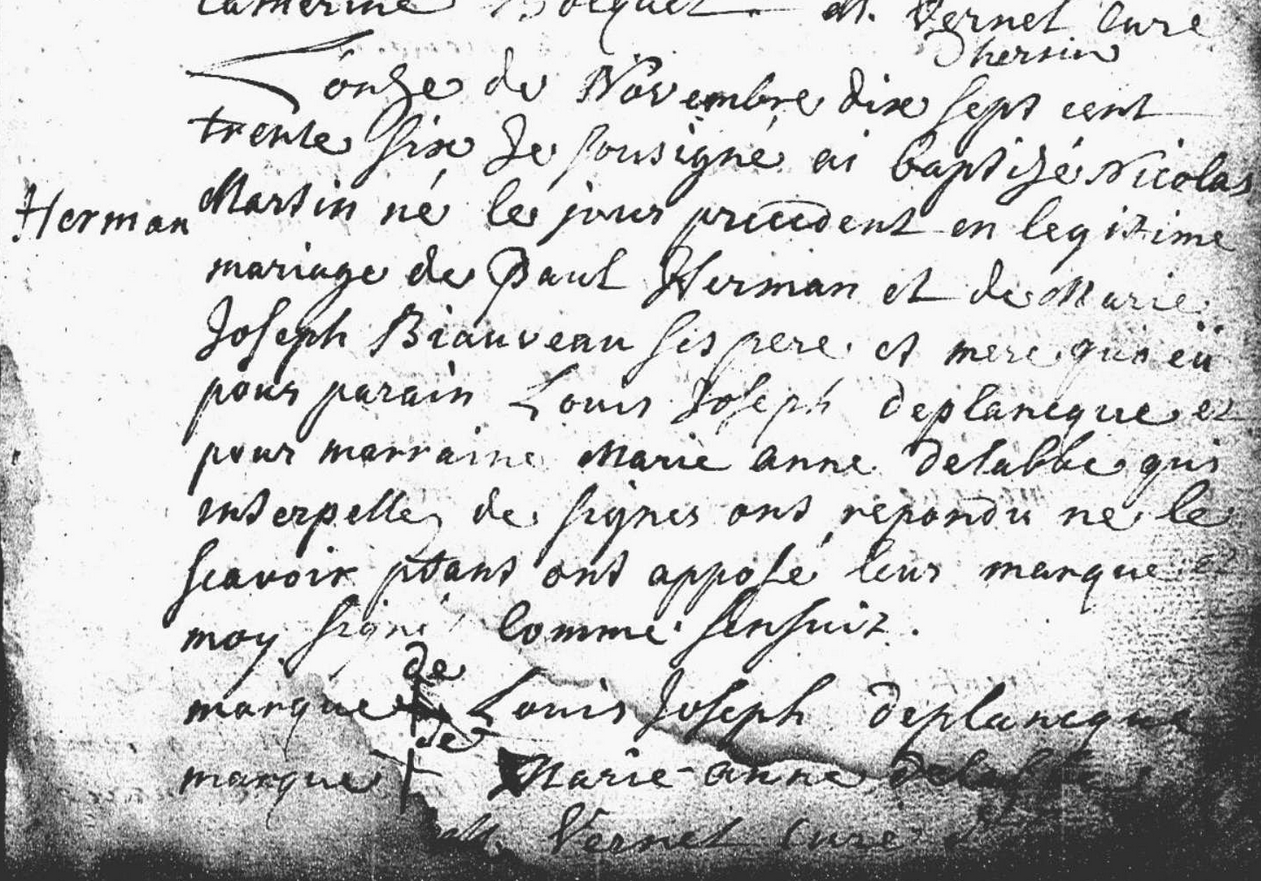 Catherine Bocquet M. Vernet Curé
Dhersin
L'onze de Novembre dix sept cent
trente six Je sousigné ai baptizé Nicolas
Herman
Martin né le jour precedent en legitime
mariage de Paul Herman et de Marie
Joseph Biauveau ses pere et mere qui eü
pour parain Louis Joseph deplancque et
pour marraine Marie anne delabbe qui
interpellez de signer ont repondu ne le
scavoir ptant ont apposé leur marque et
moy signé comme sensuit.
marque de Louis Joseph deplancque
marque de Marie anne
M. Vernet Curé